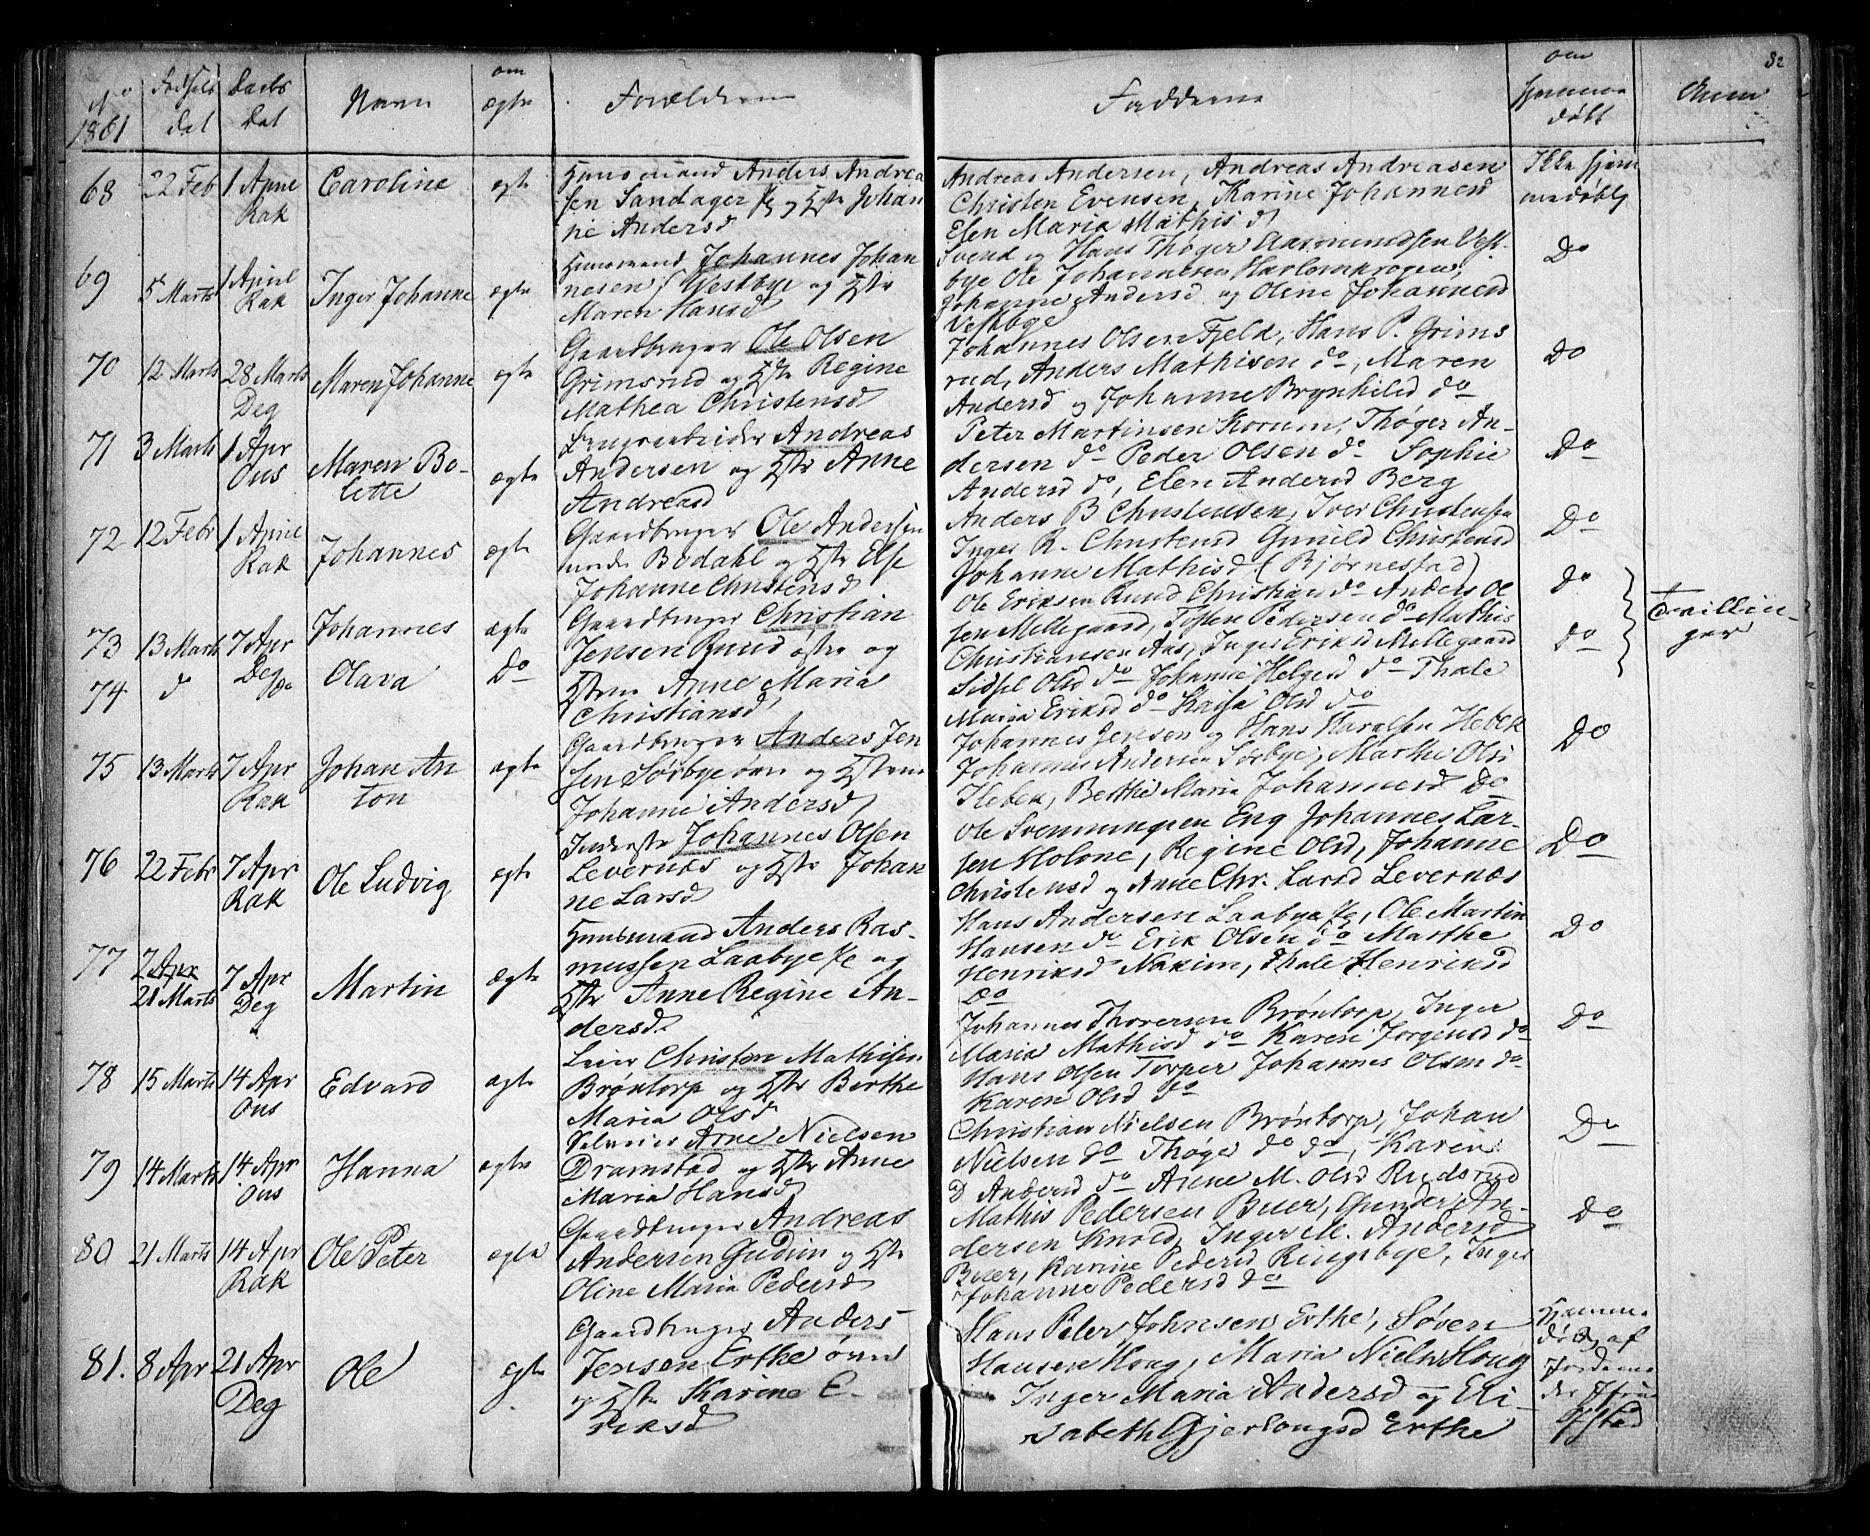 No
1861
Fødsels
dat
Daabs
Dat
Navn
om
ægte
Forældrene
Faddere
om
hjemme
døbt
Anm
82
68
22 Feb
1 April
Rak
Caroline
ægte
Huusmand Anders Andrea
sen Sandager /e og Hstr Johan
ne Andersd
Andreas Andersen, Andreas Andreasen
Christen Evensen, Karine Johannesd
Elen Maria Mathisd
Ikke hjem
medøbt
69
5 Marts
1 April
Rak
Inger Johanne
ægte
Huusmand Johannes Johan
nesen Westbye og Hstr
Maren Hansd
Svend og Hans Thøger Aasmundsen Vest
bye Ole Johannesen Harlemkrogen,
Johanne Andersd og Oline Johannesd
Vestbye
Do
70
12 Marts
28 Marts
Deg
Maren Johanne
ægte
Gaardbruger Ole Olsen
Grimsrud og Hstr Regine
Mathea Christensd
Johannes Olsen Fjeld, Hans P. Grims
rud, Anders Mathisen do, Maren
Andersd og Johanne Brynhild do
Do
71
3 Marts
1 Apr
Ous
Maren Bo-
lette
ægte
Andreas
Andersen og Hstr Anne
Andreasd
Peter Martinsen Korum, Thøger An-
dersen do Peder Olsen do Sophie
Andersd do, Elen Andersd Berg
Do
72
12 Febr
1 April
Rak
Johannes
ægte
Gaardbruger Ole Andersen
nedre Bodahl og Hstr Else
Johanne Christensd
Anders B Christensen, Iver Christensen
Inger R. Christensd Gunild Christensd
Johanne Mathisd (Bjørnestad)
Do
73
13 Marts
7 Apr
Deg
Johannes
ægte
Gaardbruger Christian
Jensen Ruud østre og
Hstru Anne Maria
Christiansd
Ole Eriksen Ruud Christian do Anders Ol
sen Mellegaard, Tosten Pedersen do Mathis
Christiansen Aas, Inger Eriksd Mellegaard
Sidsel Olsd do Johanne Helgesd do Thale
Maria Eriksd do Kaisa Olsd do
Do
Tvillin-
ger
74
do
do
Olava
Do
Do
75
13 Marts
7 Apr
Rak
Johan An
ton
ægte
Gaardbruger Anders Jen
sen Sørbye øvre og Hstrue
Johanne Andersd
Johannes Jensen og Hans Haralsen Hebek
Johannes Andersen Sørbye, Marthe Olsd
Hebek, Berthe Maria Johannesd Do
Do
76
22 Febr
7 Apr
Rak
Ole Ludvig
ægte
Inderste Johannes Olsen
Levernæs og Hstr Johan
ne Larsd
Ole Svenningsen Eng Johannes Lar-
sen Holone, Regine Olsd, Johanne
Christensd og Anne Chr. Larsd Levernæs
Do
77
2 Apr
21 Marts
7 Apr
Deg
Martin
ægte
Huusmand Anders Ras-
mussen Laabye /e og
Hstr Anne Regine An-
dersd
Hans Andersen Laabye /e, Ole Martin
Hansen do Erik Olsen do Marthe
Henriksd Nakim, Thale Henriksd
Do
Do
78
15 Marts
14 Apr
Ous
Edvard
ægte
Leier Christen Mathisen
Brøntorp og Hstr Berthe
Maria Olsd
Johannes Thoversen Brøntorp, Inger
Maria Mathisd do Karen Jørgensd do
Hans Olsen Torper Johannes Olsen do
Karen Olsd do
Do
79
14 Marts
14 Apr
Ous
Hanna
ægte
Selveier Arne Nielsen
Dramstad og Hstr Anne
Maria Hansd
Christian Nielsen Brøntorp, Johan
Nielsen do Thøger do do, Karen
Andersd do Anne M. Olsd Rudsrud
Do
80
21 Marts
14 Apr
Rak
Ole Peter
ægte
Gaardbruger Andreas
Andersen Gudim og Hstr
Oline Maria Pedersd
Mathis Pedersen Buer, Gunder An-
dersen Knold, Inger M. Andersd
Buer, Karine Pedersd Ringsbye, Inger
Johanne Pedersd do
Do
81.
8 Apr
21 Apr
Deg
Ole
ægte
Gaardbruger Anders
Jensen Erthe øvre
og Hstr Karine E-
riksd
Hans Peter Johnsen Erthe, Søren
Hansen Houg, Maria Nielsd Houg
Inger Maria Andersd og Eli-
sabeth Gjerlougsd Erthe
Hjemme
døbt af
Jordemo
der
Ofstad